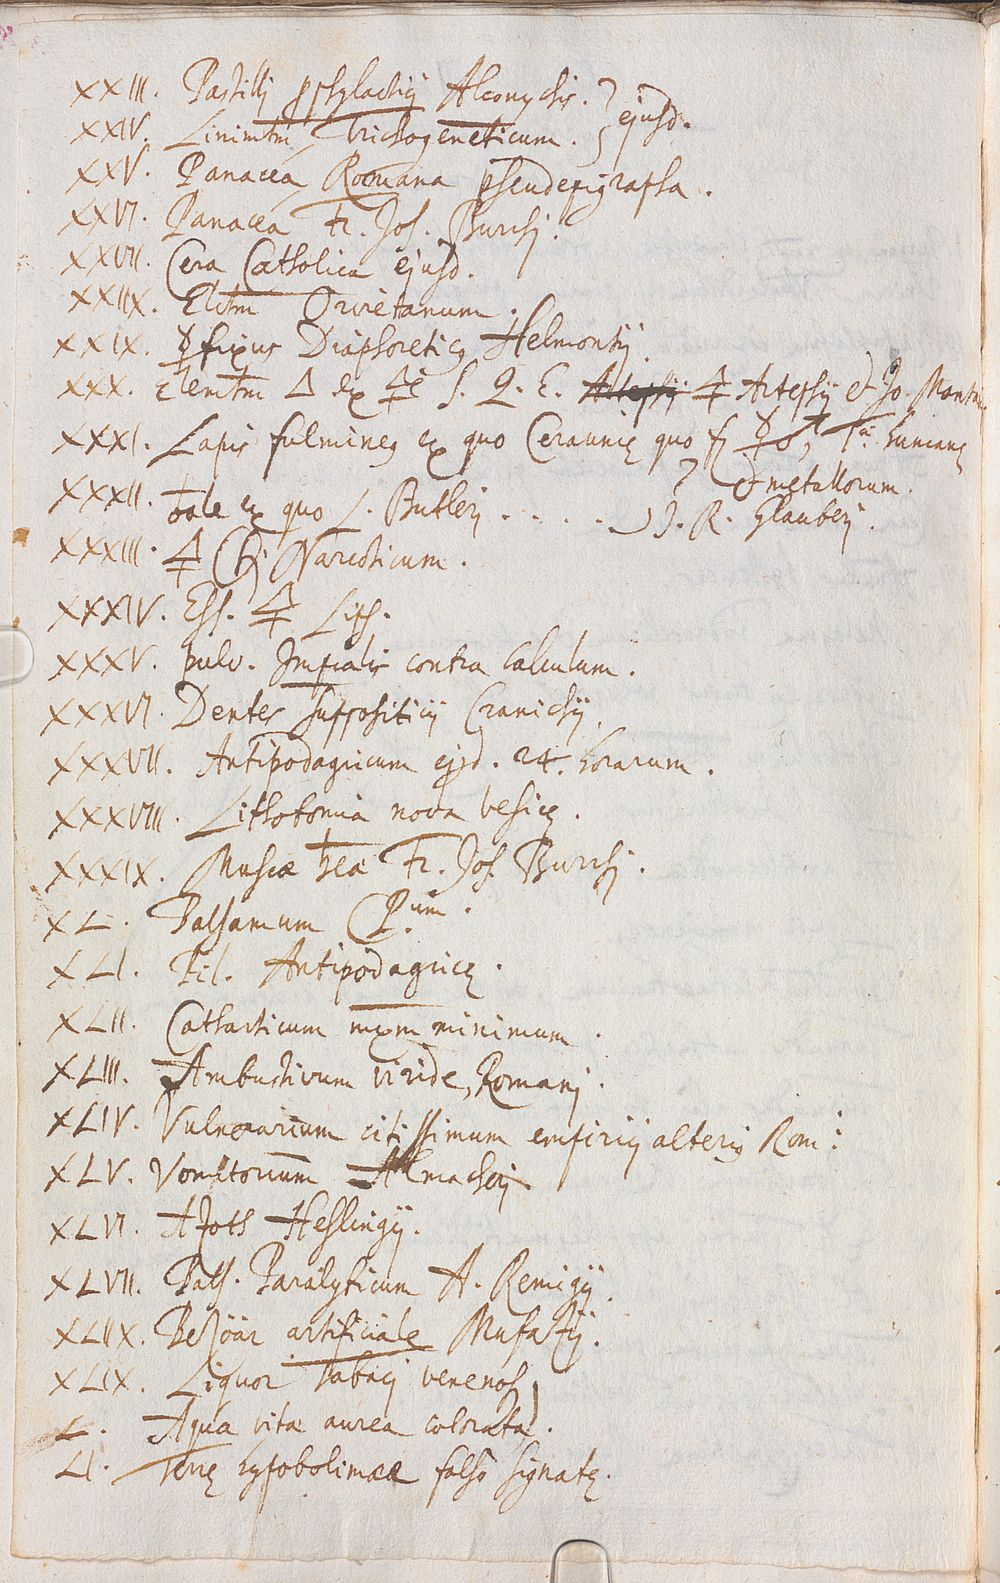 XXIII. Pastilli pshylactij Alconychis. } ejusd.
XXIV. Linimtm Trichogeneticum.
XXV. Panacea Romana pseudepigrapha.
XXVI. Panacea Fr. Jos. Burrhj.
XXVII. Cera Catholica ejusd.
XXIIX. Elctm Orvietanum.
XXIX. ☿ fixus Diaphoreticq Helmontij.
XXX. Elemtm △ ex S. Q. E. Artephij et Jo. Mont
XXXI. Lapis fulmineq ex quo Ceraunię quo humanę
et metallorum.
XXXII. tale ex quo L. Butlerj . . . . . J. R. Glauberj.
XXXIII. Narcoticum.
XXXIV. Ess. Liph.
XXXV. pulv. Impialis contra Calculum.
XXXVI. Dentes supposititij Cranichij.
XXXVII. Antipodagricum ejsd. 24. horarum.
XXXVIII. Lithotomia nova vesicę.
XXXIX. Muscæ Fr. Jos. Burrhj.
XL. Balsamum
XLI. Pil. Antipodagricę.
XLII. Catharticum mxm minimum.
XLIII. Ambustivum viride, Romanj.
XLIV. Vulnerarium citissimum empirici alteriq Rom:
XLV. Vomitorium Almacherj.
XLVI. AZoth Heslingij.
XLVII. Bals. Paralyticum A. Remigij.
XLIIX. BeZöar artificiale MusaZij.
XLIX. Liquor Tabacj venenosq
L. Aqua vitæ aurea colorata.
LI. Terrę hypobolimææ falsò signatę.